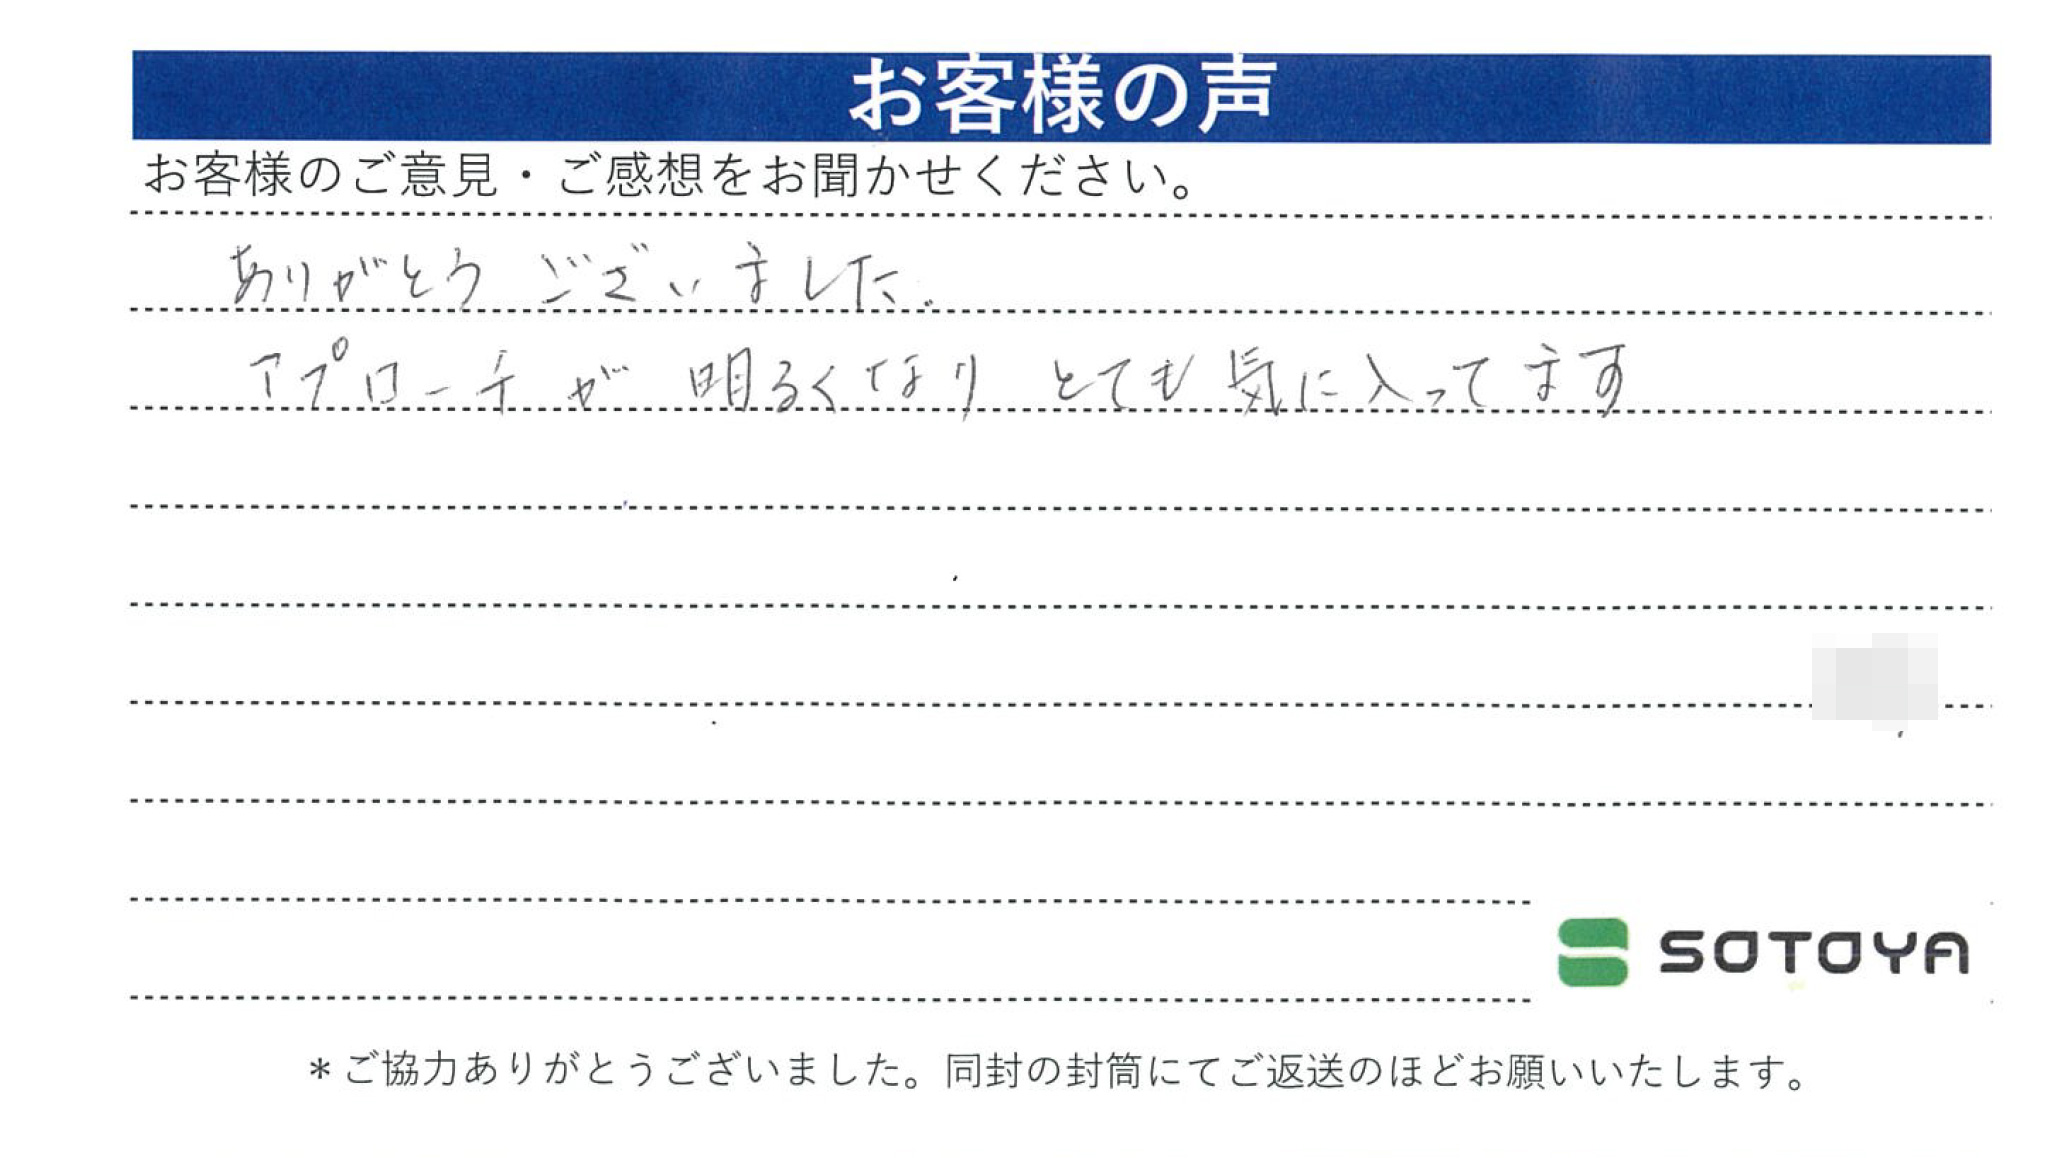 お客様の声
お客様のご意見・ご感想をお聞かせください。
ありがとう ございました.
アプローチが 明るくなり とても気に入ってます
SOTOYA
＊ご協力ありがとうございました。同封の封筒にてご返送のほどお願いいたします。